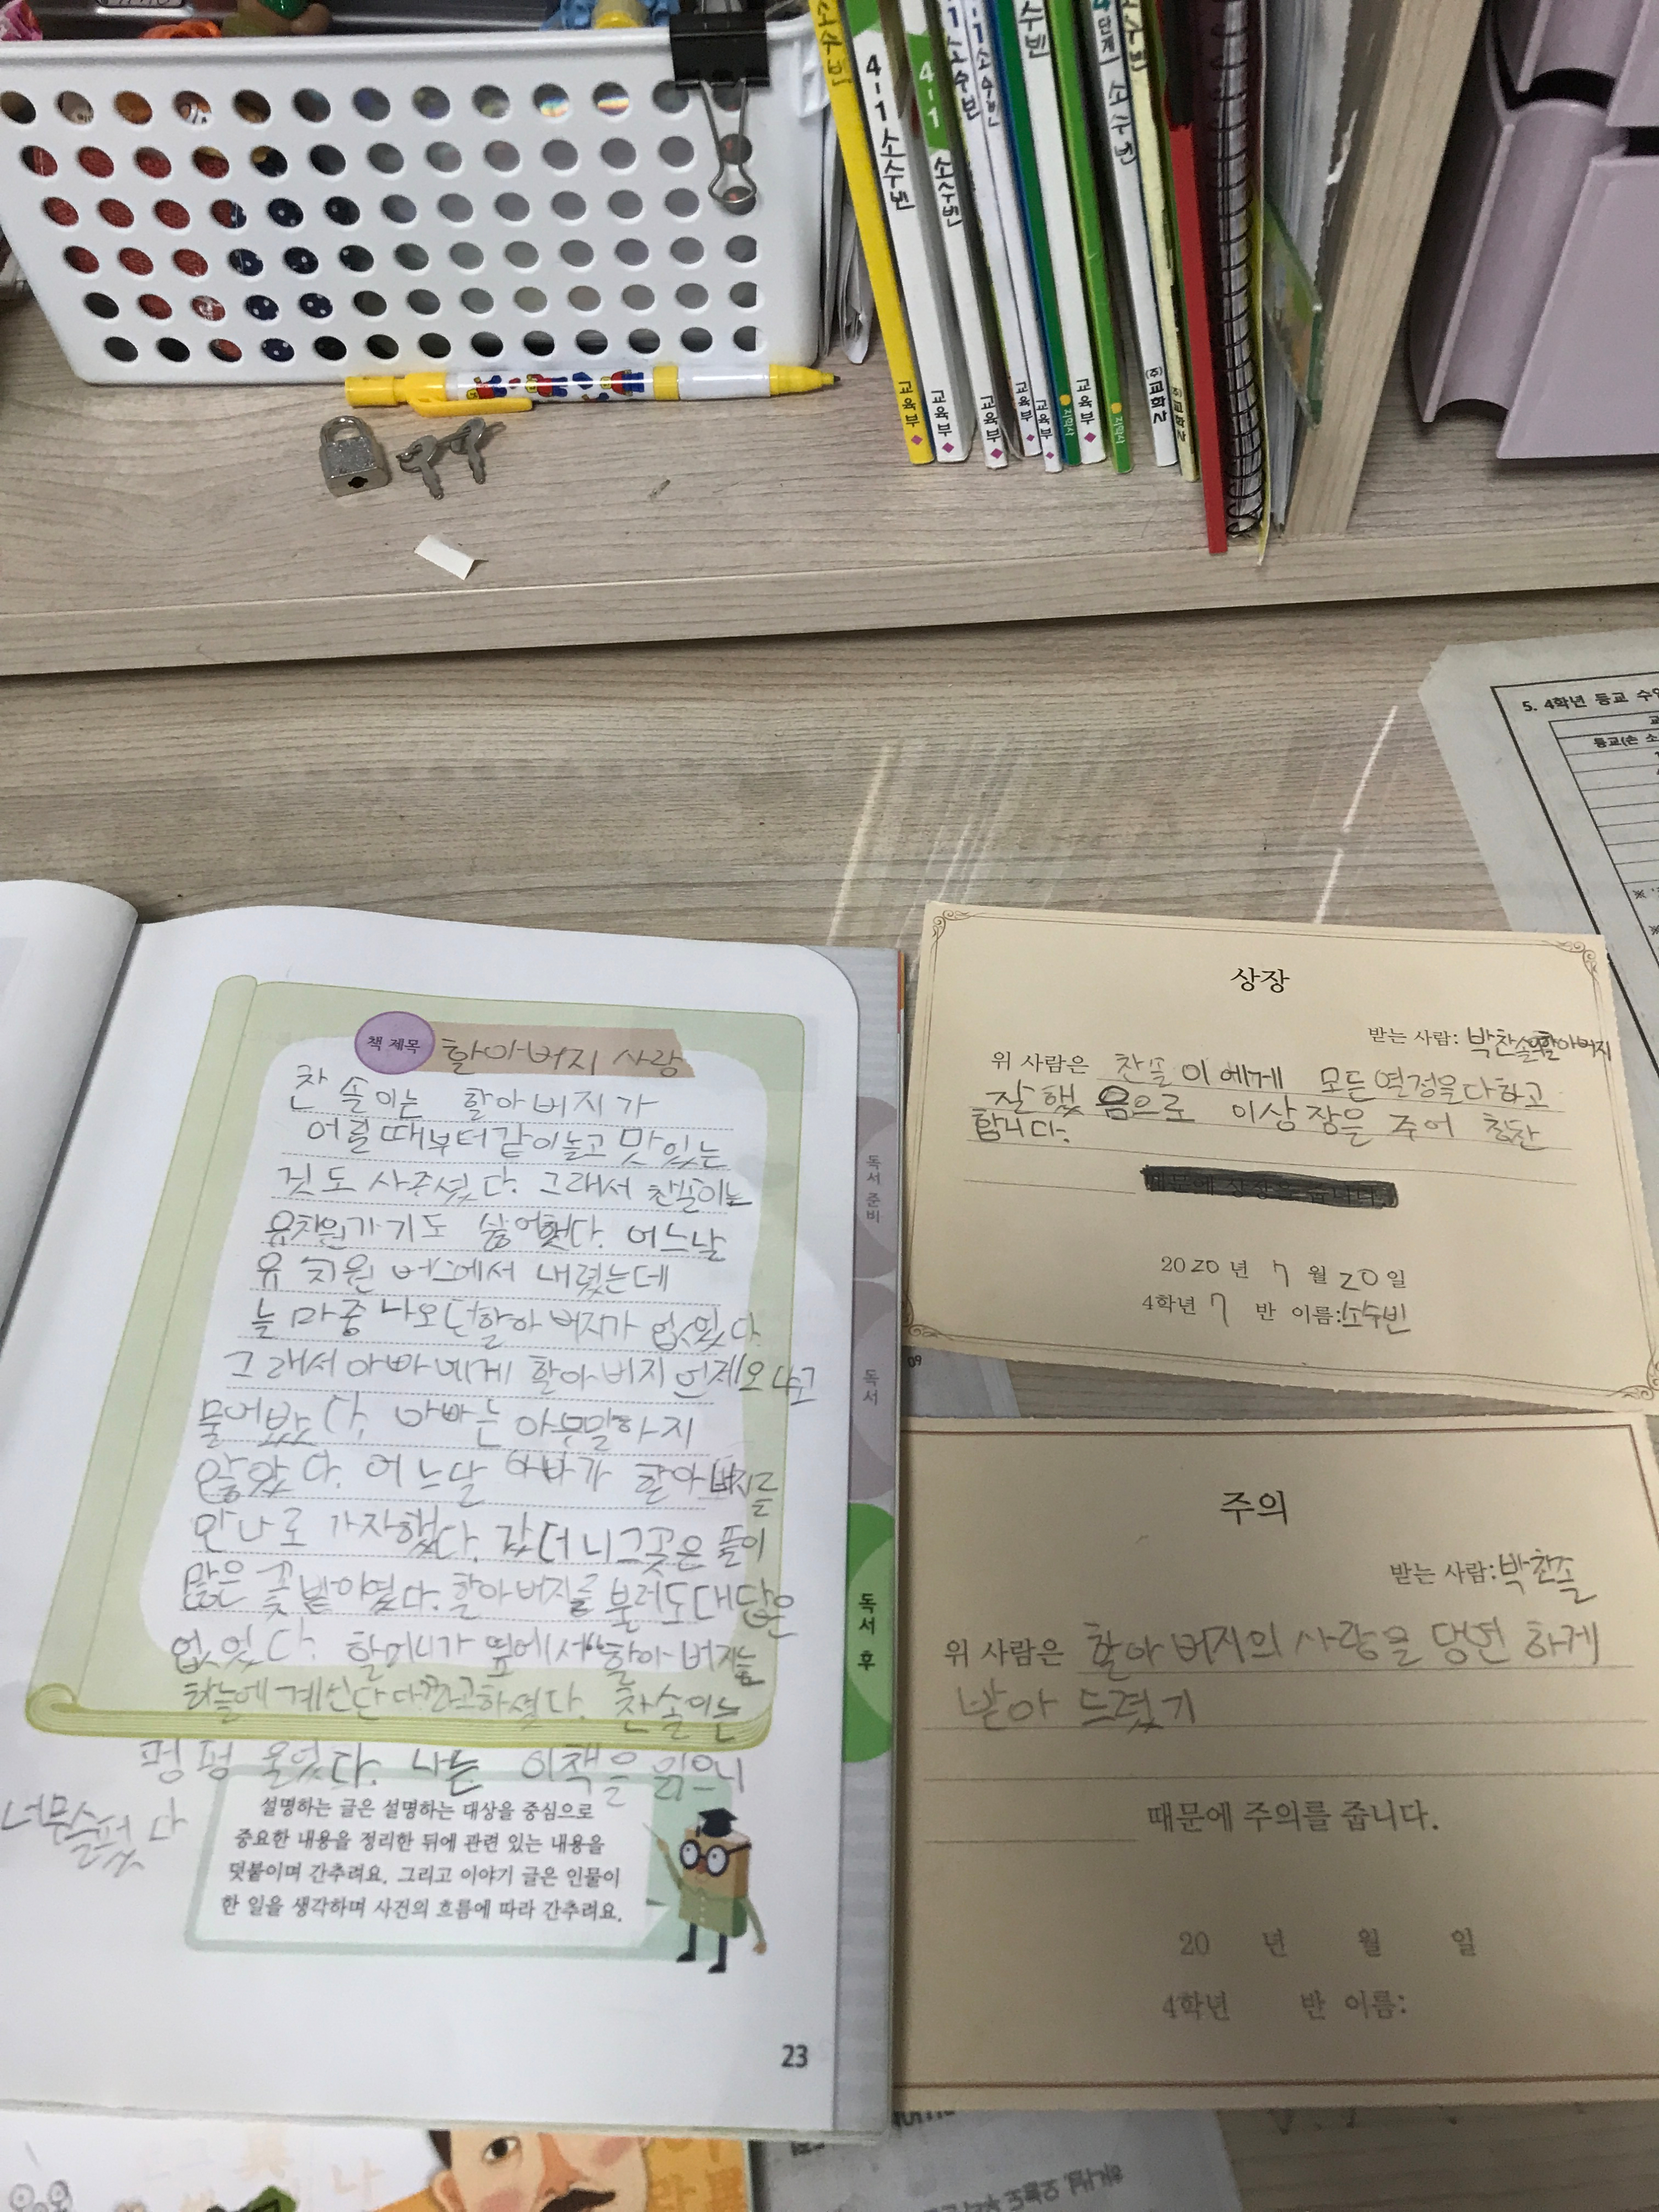 4-1 소수빈
4-1 소수빈
교육부
교육부
교육부
교육부
교육부
지학사
교육부
지학사
5. 4학년 등교 수업
등교(손 소
책 제목 할아버지 사랑
찬솔이는 할아버지가
어릴때부터같이놀고 맛있는
것도 사주셨다. 그래서 찬솔이는
유치원가기도 싫어했다. 어느날
유치원 버스에서 내렸는데
늘 마중 나오던할아버지가 없었다.
그래서 아빠에게 할아버지 언제오냐고
물어봤다. 아빠는 아무말하지
않았다. 어느날 아빠가 할아버지를
만나로 가자했다. 갔더니그곳은 풀이
많은 꽃밭이였다. 할아버지를 불러도대답은
없었다. 할머니가 옆에서“할아버지는
하늘에 계신단다”라고하셨다. 찬솔이는
펑펑 울었다. 나는 이책을 읽으니
너무슬펐다
설명하는 글은 설명하는 대상을 중심으로
중요한 내용을 정리한 뒤에 관련 있는 내용을
덧붙이며 간추려요. 그리고 이야기 글은 인물이
한 일을 생각하며 사건의 흐름에 따라 간추려요.
23
독서 준비
독서
독서 후
상장
받는 사람: 박찬솔의할아버지
위 사람은 찬솔이에게 모든열정을다하고
잘했음으로 이상장을 주어 칭찬
합니다.
2020 년 7 월 20 일
4학년 7 반 이름:소수빈
09
주의
받는 사람:박찬솔
위 사람은 할아버지의 사랑을 당연하게
받아 드렸기
때문에 주의를 줍니다.
20 년 월 일
4학년 반 이름: